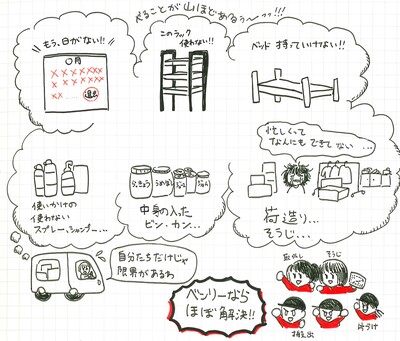 やることが山ほどあるぅ〜っっ!!!
もう、日がない!!
〇月
退去
このラック
使わない!!
ベッド 持っていけない!!
忙しくって
なんにも できて ない ...
使いかけの
使わない
スプレー、シャンプー...
らっきょう
うめぼし
中身の入った
ビン・カン...
荷造り...
そうじ...
自分たちだけじゃ
限界があるわ
ベンリーなら
ほぼ解決!!
そうじ
搬出
片づけ